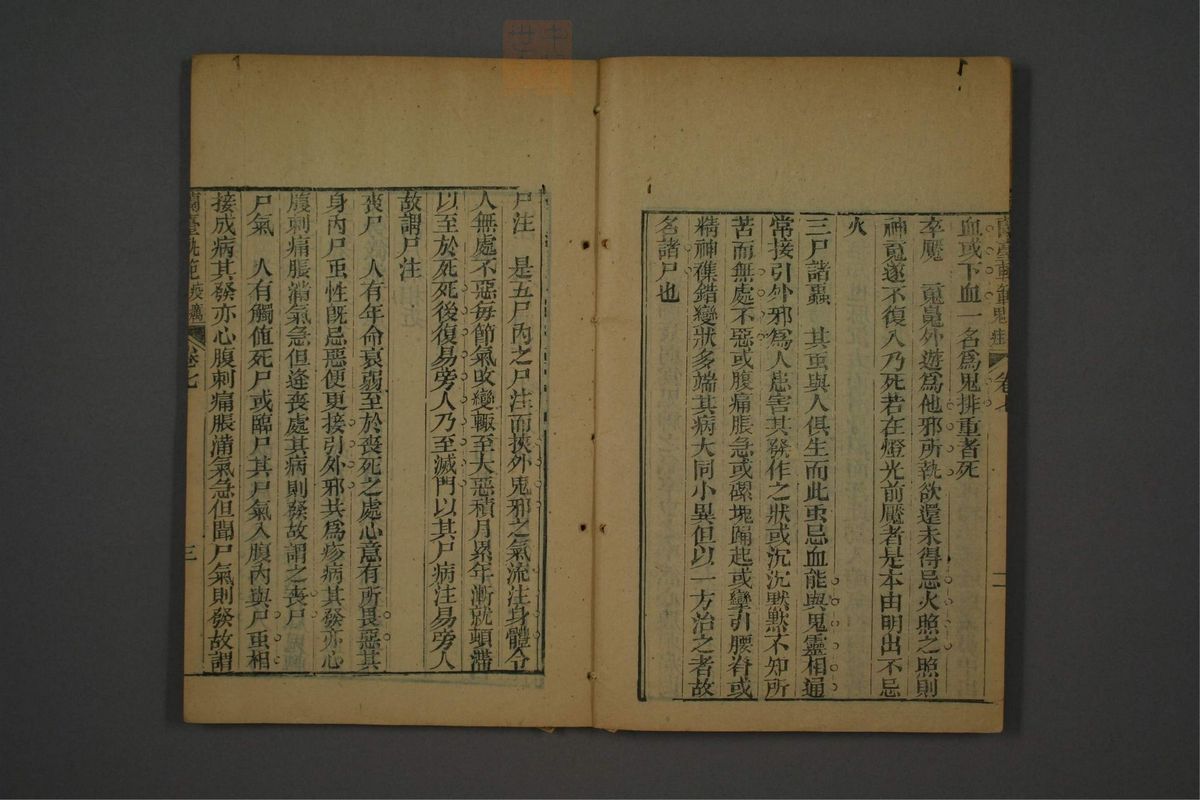 血或下血一名為鬼排重者死
卒魘　䰟嵬外遊為他邪所執欲還未得忌火照之照則
神䰟遂不復入乃死若在燈光前魘者是本由明出不忌
火
三尸諸蟲　其虫與人俱生而此虫忌血能與鬼靈相通
常接引外邪為人患害其發作之狀或沉沉默默不知所
苦而無處不惡或腹痛脹急或磥塊踊起或攣引腰脊或
精神雜錯變狀多端其病大同小異但以一方治之者故
名諸尸也
卷七
二
尸注　是五尸內之尸注而挾外鬼邪之氣流注身體令
人無處不惡每節氣改變輒至大惡積月累年漸就頓滯
以至於死死後復易旁人乃至滅門以其尸病注易旁人
故謂尸注
喪尸　人有年命衰弱至於喪死之處心意有所畏惡其
身內尸虫性既忌惡便更接引外邪共為疹病其發亦心
腹刺痛脹滿氣急但逢喪處其病則發故謂之喪尸
尸氣　人有觸值死尸或臨尸其尸氣入腹內與尸虫相
接成病其發亦心腹刺痛脹滿氣急但聞尸氣則發故謂
蘭臺軌範
卷七
三